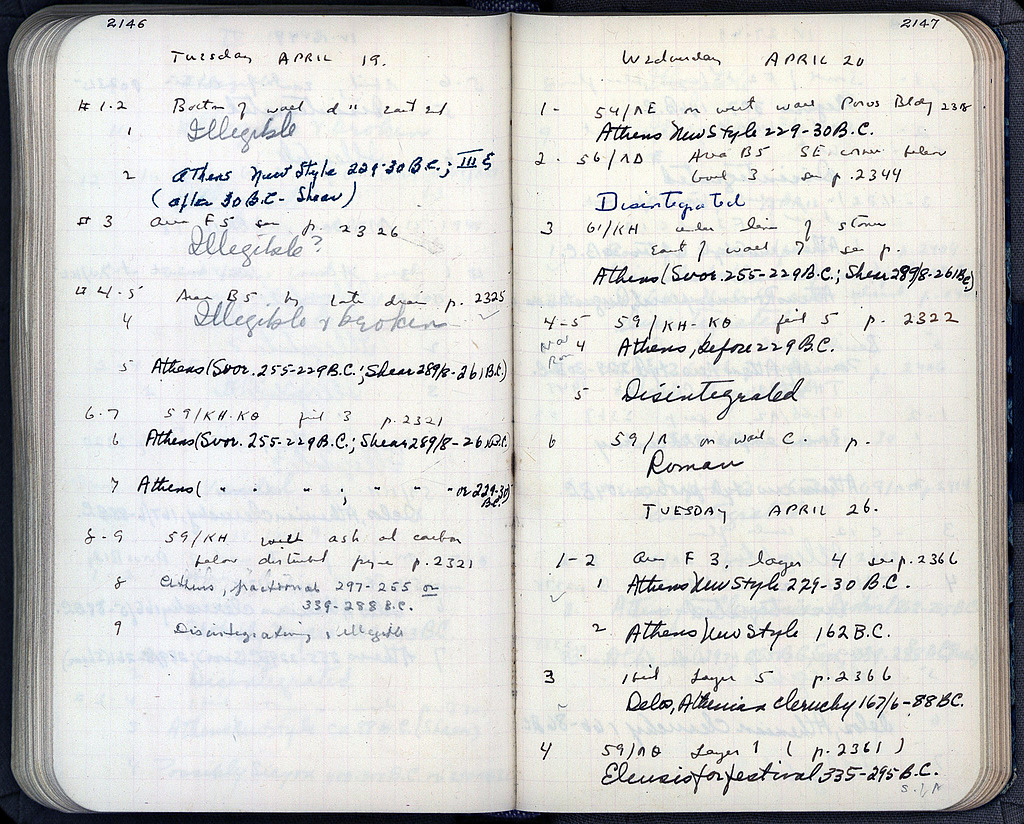 2146
Tuesday APRIL 19.
# 1-2 Bottom of wall
1 Illegible
2 Athens New Style 229-30 B.C.; III
(after 30 B.C. - Shear)
# 3 Area F5 see p. 2326
Illegible?
# 4-5 Area B5 by late drain p. 2325
4 Illegible & broken
5 Athens (Svor. 255-229 B.C.; Shear 289/8-261 B.C.)
6-7 59/KH-KΘ pit 3 p. 2321
6 Athens (Svor. 255-229 B.C.; Shear 289/8-261 B.C.
7 Athens ( " " " ; " " - or 229-30 B.C.
8-9 59/KH with ash at carbon
below disturbed p. 2321
8 Athens, fractional 297-255 or
339-288 B.C.
9 Disintegrating, illegible
2147
Wednesday APRIL 20
1- 54/ΛE on west wall Poros Bldg
Athens New Style 229-30 B.C.
2- 56/ΛΔ Area B5 SE corner below
level 3 see p. 2344
Disintegrated
3 61/KH under line of stones
East of wall of see p.
Athens (Svor. 255-229 B.C.; Shear 289/8-261 B.C.)
4-5 59/KH-KΘ pit 5 p. 2322
4 Athens, before 229 B.C.
5 Disintegrated
6 59/Λ on wall C. p.
Roman
TUESDAY APRIL 26.
1-2 Area F 3, layer 4 see p. 2366
1 Athens New Style 229-30 B.C.
2 Athens New Style 162 B.C.
3 ibid layer 5 p. 2366
Delos, Athenian cleruchy 167/6-88 B.C.
4 59/ΛΘ layer 1 ( p. 2361 )
Eleusis for festival 335-295 B.C.